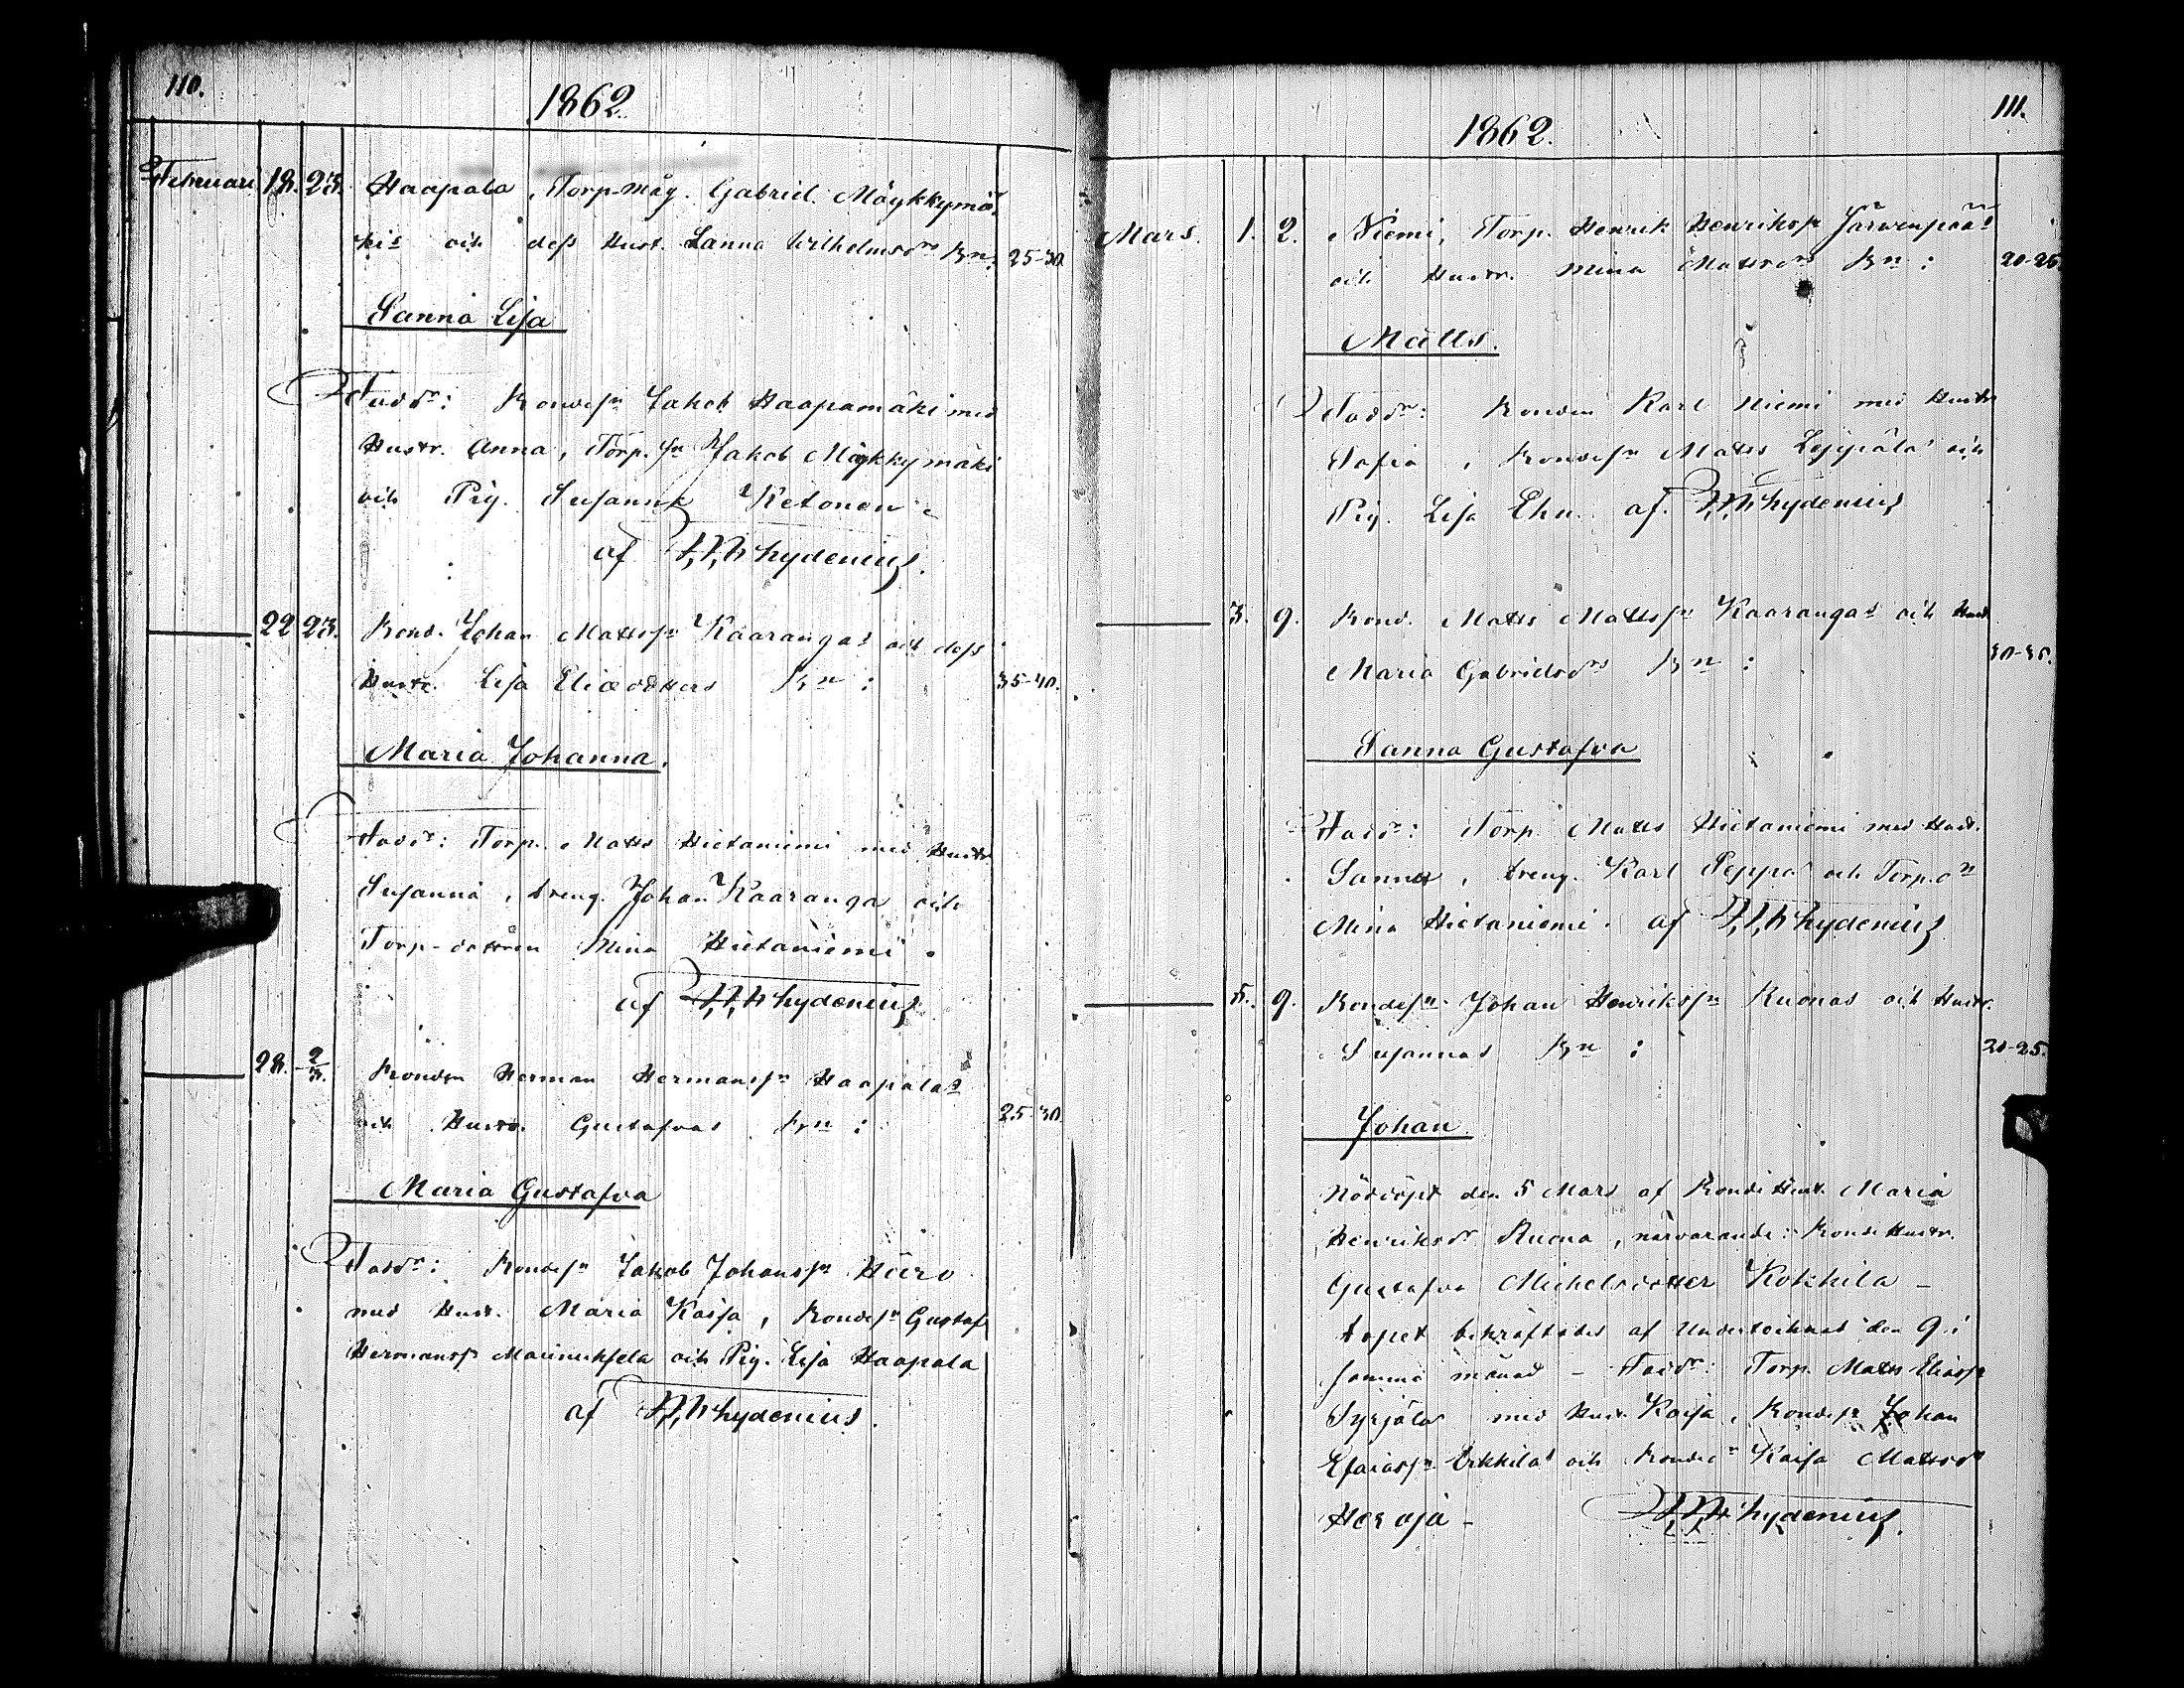 110.
1862.
Februari 18. 23. Haapala, Torp.måg. Gabriel Möykkymä-
kis och dess Hust. Sanna Wilhelmsdrs Bn: 25-30.
Sanna Lisa
Faddr: Bondesn Jakob Haapamäki med
Hustr. Anna, Torp.sn Jakob Möykkymäki
och Pig. Susanna Ketonen.
af Hydenius.
22 23. Bond. Johan Mattssn Kaarangas och dess
Hustr. Lisa Eliædotters Bn: 35-40.
Maria Johanna.
Faddr: Torp. Matts Hietaniemi med Hustr
Susanna, dreng. Johan Kaaranga och
Torp-dottren Mina Hietaniemi.
af Hydenius
28. 2/3. Bonden Herman Hermanssn Haapalas
och Hustr. Gustafvas Bn: 25-30
Maria Gustafva
Faddr: Bondesn Jakob Johanssn Hiiro
med Hust. Maria Kaisa, Bondesn Gustaf
Hermanss och Pig. Lisa Haapala
af Hydenius.
111.
1862.
Mars. 1. 2. Niemi, Torp. Henrik Henrikssn Järwenpääs
och Hustr. Mina Mattsdrs Bn: 20-25.
Matts.
Faddr: Bonden Karl Niemi med Hustr
Sofia, Bondesn Matts Leppälä och
Pig. Lisa Ehn. af Hydenius
3. 9. Bond. Matts Mattssn Kaarangas och Hust
Maria Gabrielsdrs Bn: 30-35.
Sanna Gustafva
Faddr: Torp. Matts Hietaniemi med Hust.
Sanna, dreng. Karl Seppä och Torp.dn
Mina Hietaniemi. af Hydenius
5. 9. Bondesn Johan Henrikssn Ruonas och Hustr.
Susannas Bn: 20-25.
Johan.
Nöddöpt den 5 Mars af Bonde Hust. Maria
Henriksdr Ruona, närvarande: Bonde Hustr.
Gustafva Michelsdotter Kokkila -
dopet bekräftades af Undertecknad den 9 i
samma månad - Faddr: Torp. Matts Eliassn
Syrjälä med Hust. Kaisa, Bondesn Johan
Esaiassn Erkkilä och Bonded Kaisa Mattsdr
Heroja - Hydenius.